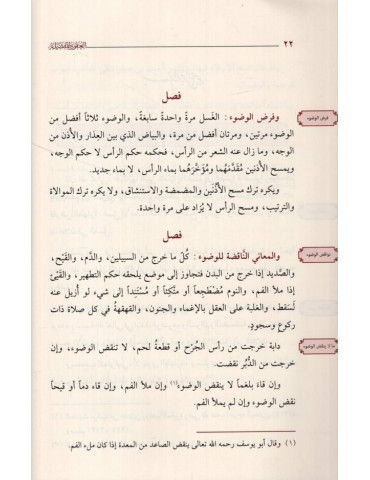 ٢٢
فصل
فرض الوضوء
وفرض الوضوء : الغَسل مرةً واحدةً سابغةً، والوضوء ثلاثاً أفضل من
الوضوء مرتين، ومرتان أفضل من مرة، والبياض الذي بين العِذار والأُذن من
الوجه، وما زال عنه الشعر من الرأس، فحكمه حكم الرأس لا حكم الوجه،
ويمسح الأُذنَين مُقدَّمَهما ومُؤخَّرَهما بماء الرأس، لا بماء جديد.
ويكره ترك مسح الأُذُنَين والمضمضة والاستنشاق، ولا يكره ترك الموالاة
والترتيب، ومسح الرأس لا يُزاد على مرة واحدة.
فصل
نواقض الوضوء
والمعاني النَّاقضة للوضوء : كُلُّ ما خرج من السبيلين، والدَّم، والقَيْح،
والصَّديد إذا خرج من البدن فتجاوز إلى موضع يلحقه حكم التطهير، والقَيْءُ
إذا ملأ الفم، والنوم مُضْطَجِعاً أو مُتَّكِئاً أو مُسْتَنِداً إلى شيء لو أُزيل عنه
لَسَقط، والغَلبة على العقل بالإغماء والجنون، والقهقهةُ في كل صلاة ذات
ركوع وسجودٍ.
ما لا ينقض الوضوء
دابة خرجت من رأس الجُرْح أو قطعةُ لحم، لا تنقض الوضوء، وإن
خرجت من الدُّبُر نقضت.
وإن قاء بلغماً لا ينقض الوضوء(١) وإن ملأ الفم، وإن قاء دماً أو قيحاً
نقض الوضوء وإن لم يملأ الفم.
(١) وقال أبو يوسف رحمه الله تعالى ينقض الصاعد من المعدة إذا كان ملء الفم.